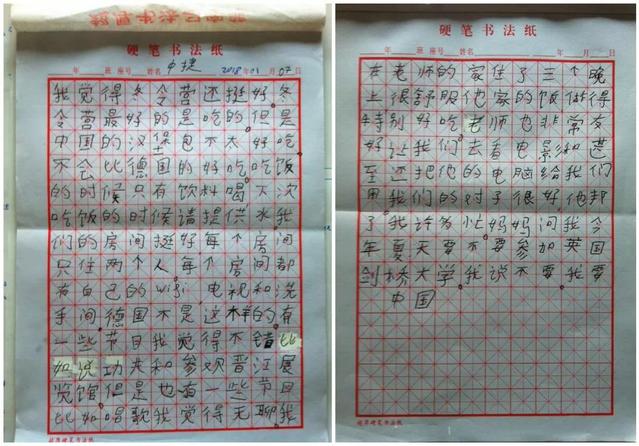 硬笔书法纸
年 班 座号 姓名 中捷 2018年01月07日
我觉得冬令营还挺好.冬
令营最好的是吃的.但是
中国的汉堡包不太好吃.
不会比德国的好吃.吃饭
的时候只有饮料喝.下次
吃饭的时候请提供水.我
们的房间挺好每个房间
只住两个人.每个房间都
有自己的wifi.电视和洗
手间.德国不是这样的.有
一些节目我觉得不错比
如说功夫和参观晋江展
览馆.但是也有一些节目
比如唱歌我觉得无聊.我
硬笔书法纸
年 班 座号 姓名 年 月 日
在老师的家住了三个晚
上很舒服他家的饭做得
特别好吃.老师也非常友
好.让我们去看电影和甚
至还把他的电脑给我们
用.我们的对子很好他帮
了我许多忙.妈妈问我今
年夏天要不要参加英国
剑桥大学.我说不要.我要
中国